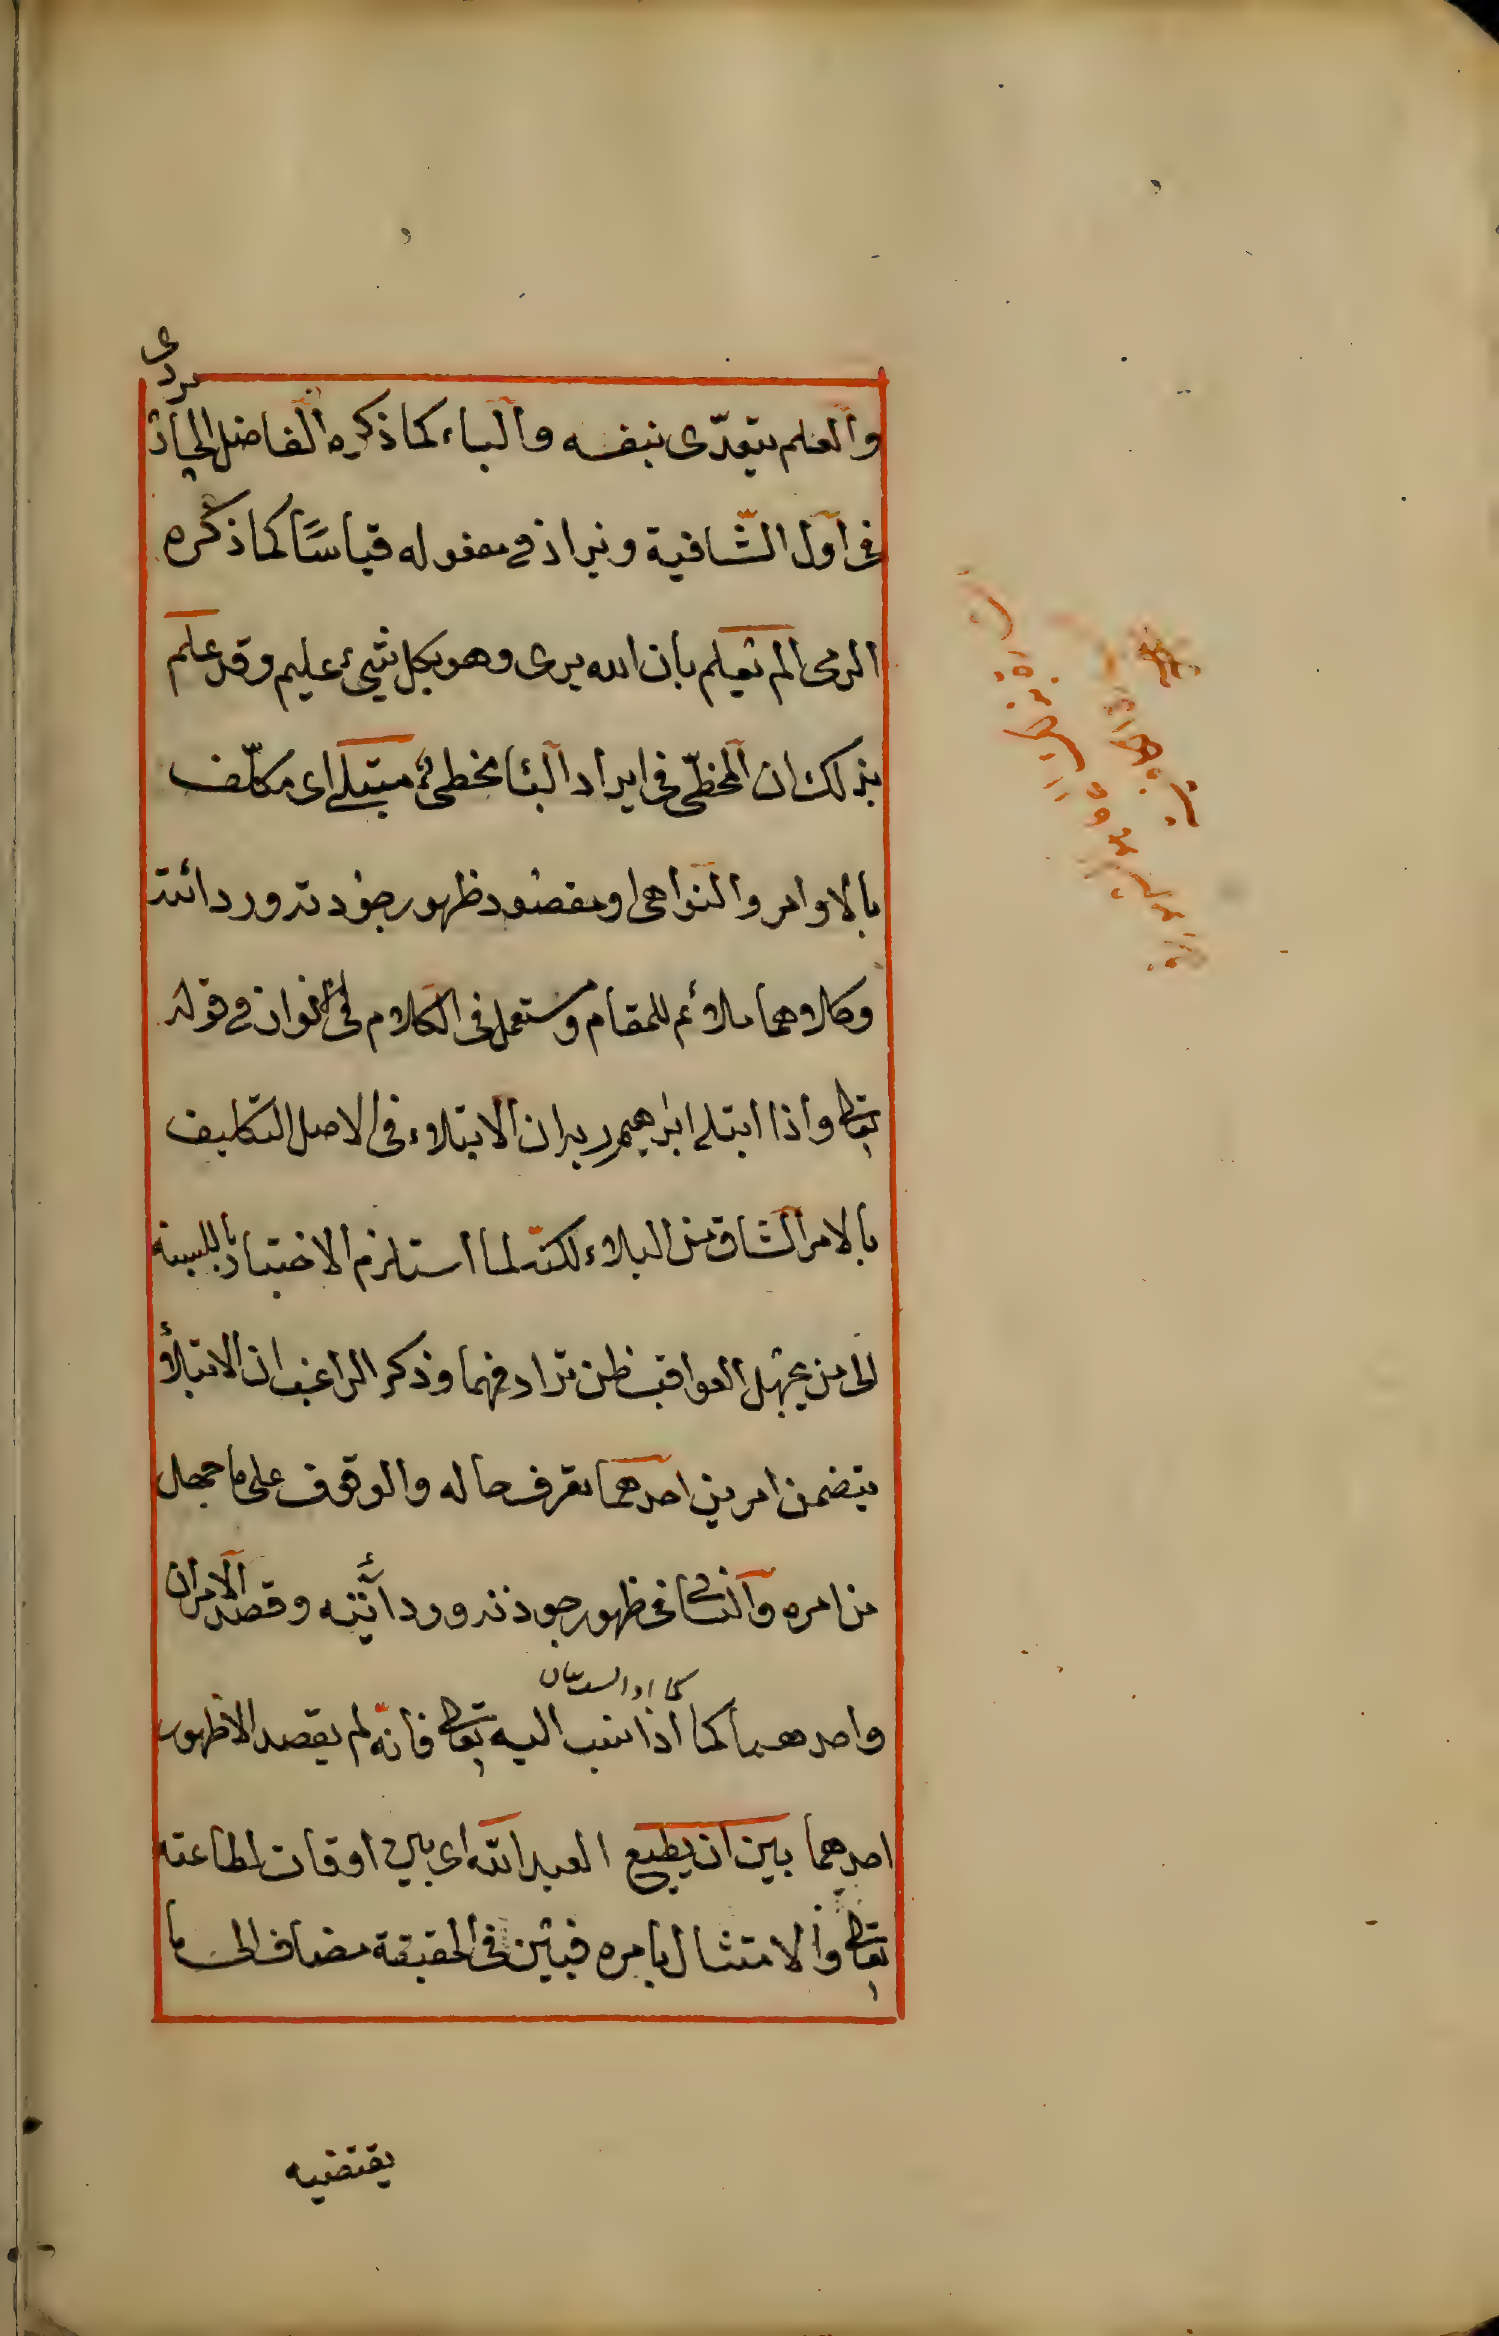 والعلم يتعدى بنفسه والباء كما ذكره الفاضل الجاربردى
فى اول الشافية ويزاد فى مفعوله قياسًا كما ذكره
الرضى الم تعلم بان الله يرى وهو بكل شيئ عليم وقد علم
بذلك ان المخطّئ فى ايراد البا مخطى مبتلى اى مكلّف
بالاوامر والنواهى او مقصود ظهور جودته وردائته
وكلاهما ملائم للمقام ومستعمل فى الكلام فى قوله
تعالى واذا ابتلى ابرهيم ربه ان الابتلاء فى الاصل التكليف
بالامر الشاق من البلاء لكنّه لما استلزم الاختبار بالنسبة
الى من يجهل العواقب ظن ترادفهما وذكر الراغب ان الابتلاء
يتضمن امرين احدهما تعرف حاله والوقوف على ما جهل
من امره والثانى ظهور جودته وردائته وقصد الامران
واحدهما كما اذا نسب اليه تعالى فانّه لم يقصد الا ظهور
احدهما بين ان يطيع العبد الله اى بين اوقات اطاعته
تعالى والامتثال بامره فبين فى الحقيقة مضاف الى ما
يقتضيه